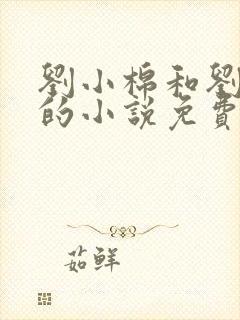 劉小棉和劉
的小說免費
茹鮮